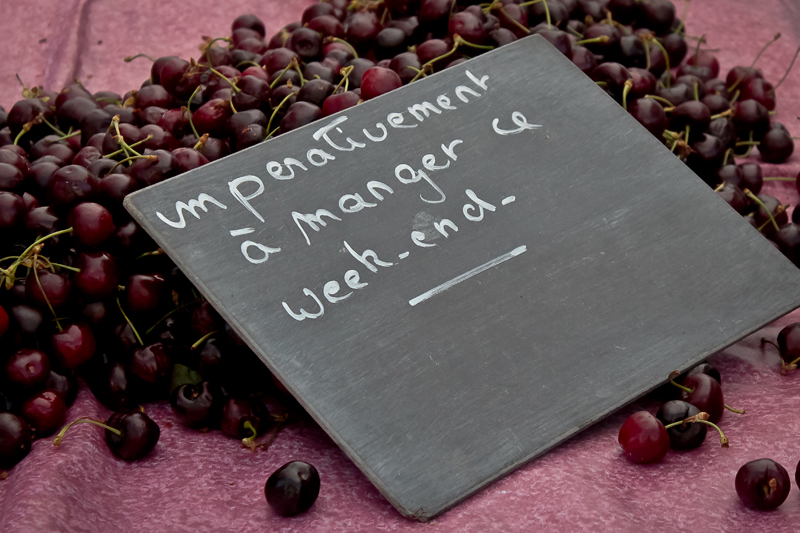 Impérativement
à manger ce
week-end.